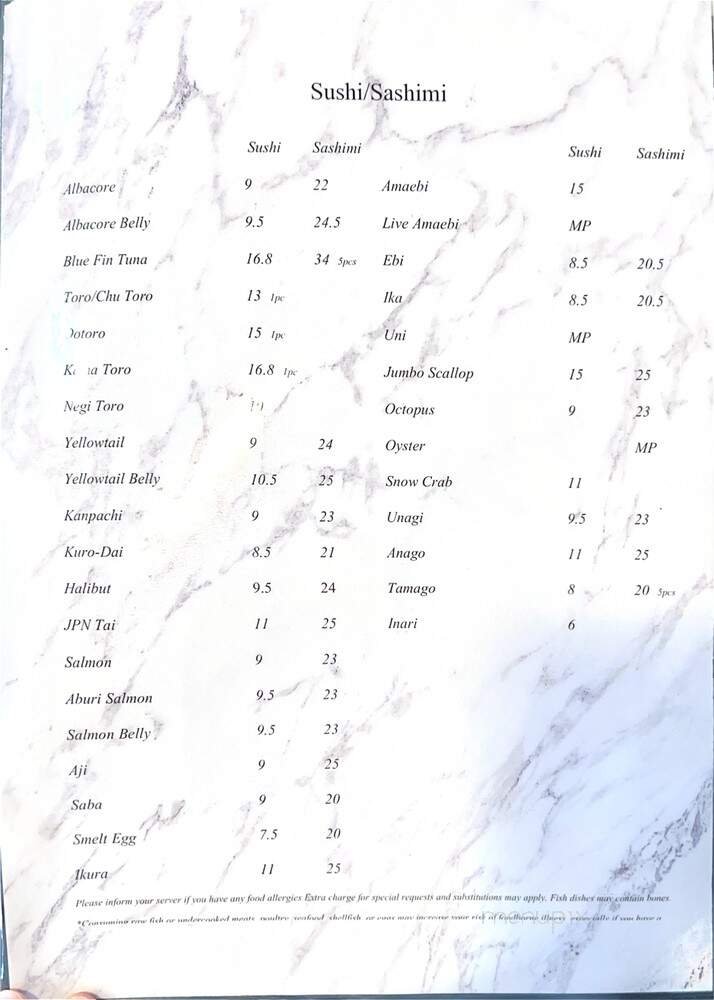 Sushi/Sashimi
Sushi Sashimi
Albacore 9 22
Albacore Belly 9.5 24.5
Blue Fin Tuna 16.8 34 5pcs
Toro/Chu Toro 13 1pc
otoro 15 1pc
Toro 16.8 1pc
Negi Toro
Yellowtail 9 24
Yellowtail Belly 10.5 25
Kanpachi 9 23
Kuro-Dai 8.5 21
Halibut 9.5 24
JPN Tai 11 25
Salmon 9 23
Aburi Salmon 9.5 23
Salmon Belly 9.5 23
Aji 9 25
Saba 9 20
Smelt Egg 7.5 20
Ikura 11 25
Sushi Sashimi
Amaebi 15
Live Amaebi MP
Ebi 8.5 20.5
Ika 8.5 20.5
Uni MP
Jumbo Scallop 15 25
Octopus 9 23
Oyster MP
Snow Crab 11
Unagi 9.5 23
Anago 11 25
Tamago 8 20 5pcs
Inari 6
Please inform your server if you have any food allergies Extra charge for special requests and substitutions may apply. Fish dishes may contain bones.
*Consuming raw fish or undercooked meats, poultry, seafood, shellfish, or eggs may increase your risk of foodborne illness, especially if you have a